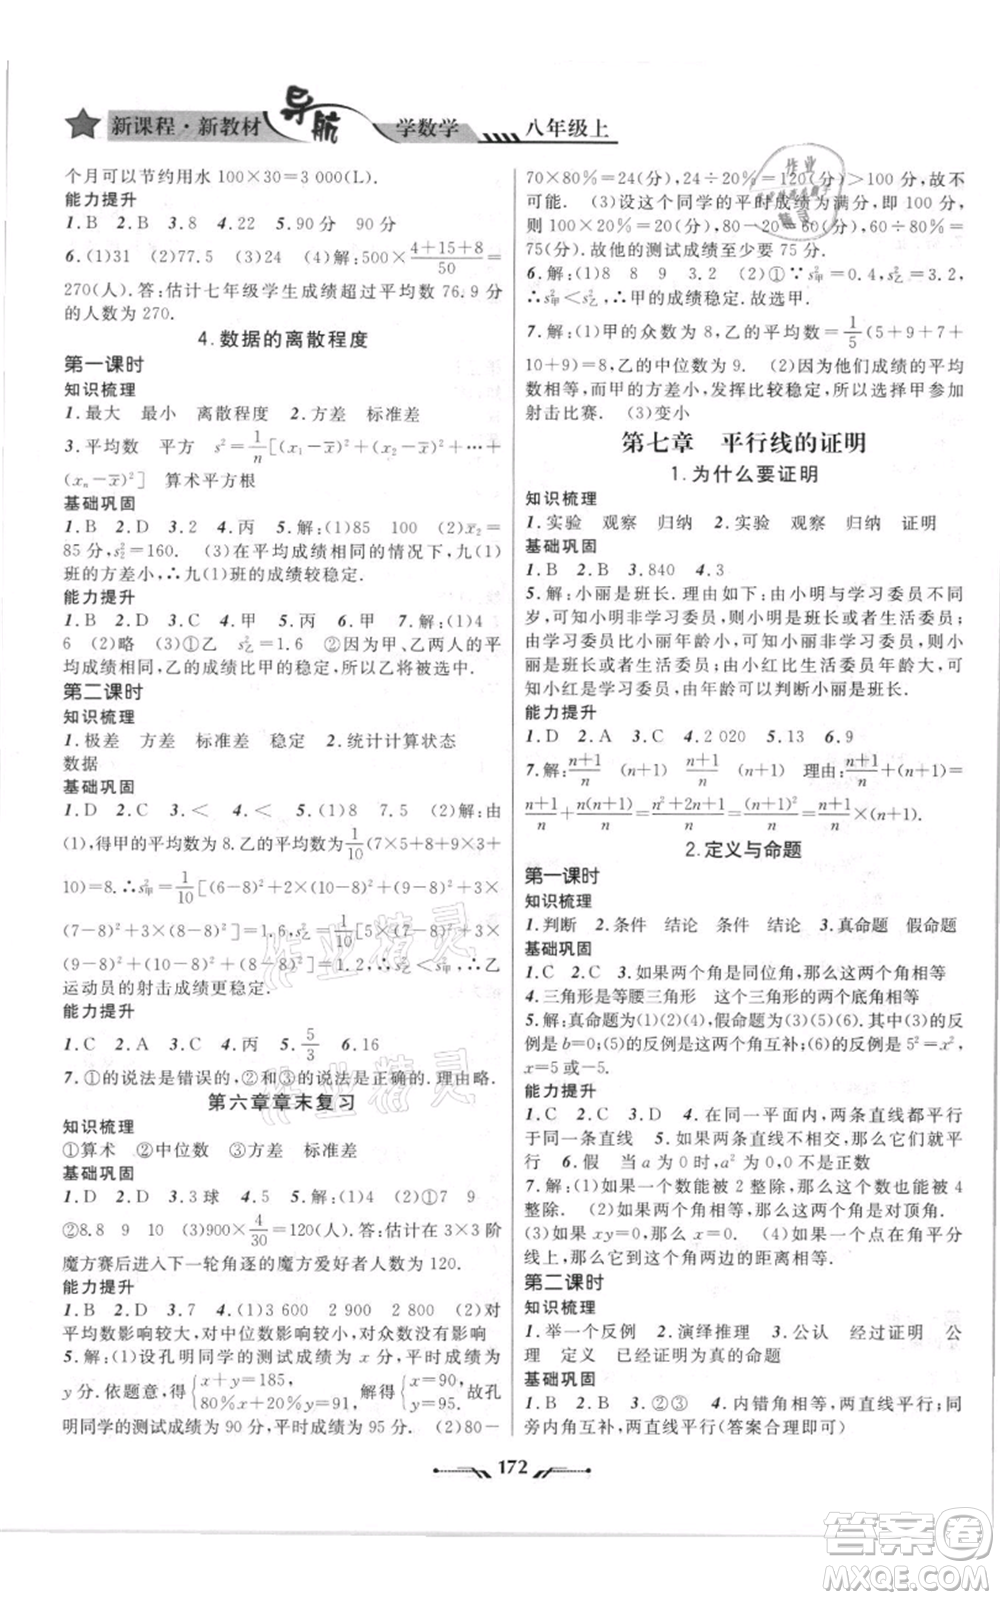 新课程·新教材 导航 学数学 八年级上
个月可以节约用水 100×30=3 000(L).
能力提升
1.B 2.B 3.9 4.225 5.90分 90分
6.(1)31 (2)77.5 (3)24 (4)解:500×(4+15+8)/50=
270(人).答:估计七年级学生成绩超过平均数 76.9 分
的人数为 270.
4.数据的离散程度
第一课时
知识梳理
1.最大 最小 离散程度 2.方差 标准差
3.平均数 平方 s²=1/n[(x₁-x̄)²+(x₂-x̄)²+…+
(xₙ-x̄)²] 算术平方根
基础巩固
1.B 2.D 3.2 4.丙 5.解:(1)85 100 (2)x̄₂=
85分,s₂²=160. (3)在平均成绩相同的情况下,九(1)
班的方差小,∴九(1)班的成绩较稳定.
能力提升
1.B 2.D 3.C 4.甲 5.丙 6.甲 7.解:(1)4
6 (2)略 (3)①乙 s乙²=1.6 ②因为甲、乙两人的平
均成绩相同,乙的成绩比甲的稳定,所以乙将被选中.
第二课时
知识梳理
1.极差 方差 标准差 稳定 2.统计计算状态
数据
基础巩固
1.D 2.C 3.< 4.< 5.(1)8 7.5 (2)解:由
(1),得甲的平均数为 8.乙的平均数为1/10(7×5+8×2+
10)=8.∴s甲²=1/10[(6-8)²+(6-8)²+(9-8)²×3+
(7-8)²×3+(8-8)²×2]=1.6,s乙²=1/10[(7-8)²×5+
(9-8)²×2+(10-8)²]=1.2,∴s乙²<s甲²,∴乙
运动员的射击成绩更稳定.
能力提升
1.C 2.C 3.A 4.B 5.5/3 6.16
7.①的说法是错误的,②和③的说法是正确的.理由略.
第六章章末复习
知识梳理
①算术 ②中位数 ③方差 标准差
基础巩固
1.D 2.B 3.3球 4.5 5.解:(1)C (2)①7 9
②8.8 9 10 (3)900×4/30=120(人).答:估计在 3×3 阶
魔方赛后进入下一轮角逐的魔方爱好者人数为 120.
能力提升
1.B 2.D 3.7 4.(1)3 600 2 900 2 800 (2)对
平均数影响较大,对中位数影响小,对众数没有影响
5.解:(1)设孔明同学的测试成绩为 x 分,平时成绩为
y分.依题意,得{x+y=185,80%x+20%y=91. 解得{x=90,y=95.故孔
明同学的测试成绩为 90 分,平时成绩为 95 分. (2)80-
70×80%=24(分),24÷20%=120(分)>100分,故不
可能. (3)设这个同学的平时成绩为满分,即 100 分,
则 100×20%=20(分),80-20=60(分),60÷80%=
75(分).故他的测试成绩至少要 75 分.
6.解:(1)8 8 9 3.2 (2)①∵s甲²=0.4,s乙²=3.2,
∴s甲²<s乙²,∴甲的成绩比较稳定.故选甲.
7.解:(1)甲的众数为 8,乙的平均数=1/5(5+9+7+
10+9)=8,乙的中位数为 9. (2)因为他们成绩的平均
数相等,而甲的方差小,发挥比较稳定,所以选择甲参加
射击比赛. (3)变小
第七章 平行线的证明
1.为什么要证明
知识梳理
1.实验 观察 归纳 2.实验 观察 归纳 证明
基础巩固
1.B 2.B 3.840 4.3
5.解:小丽是班长.理由如下:由于小明与学习委员不同
岁,可知小明非学习委员,则小明是劳动委员或班长;又
由学习委员比小丽年龄小,可知小丽非学习委员,则小
丽是班长或劳动委员;再由小红比生活委员年龄大,可
知小红是学习委员,由年龄可以判断小丽是班长.
能力提升
1.D 2.A 3.C 4.2 020 5.13 6.9
7.解:(n+1)/n (n+1) (n+1)/n (n+1) 理由:(n+1)/n+(n+1)=
(n+1)/n+n(n+1)/n=(n²+2n+1)/n=(n+1)²/n=(n+1)/n×(n+1).
2.定义与命题
第一课时
知识梳理
1.判断 2.条件 结论 条件 结论 3.真命题 假命题
基础巩固
1.C 2.C 3.如果两个角是同位角,那么这两个角相等
4.三角形是等腰三角形 这个三角形的两个底角相等
5.解:真命题为(1)(4),假命题为(2)(3)(5)(6).其中(2)的反
例是 b=0;(5)的反例是这两个角互补;(6)的反例是 5²=x²,
x=5或-5.
能力提升
1.C 2.C 3.D 4.在同一平面内,两条直线都平行
于同一条直线 5.如果两直线不相交,那么它们平
行 6.假 当 a 为 0 时,a²=0,0不是正数
7.解:(1)如果一个数能被 2 整除,那么这个数也能被 4
整除. (2)如果两个角相等,那么这两个角为对顶角.
(3)如果 xy=0,那么 x=0. (4)如果一个点在角平分
线上,那么它到这个角两边的距离相等.
第二课时
知识梳理
1.举一个反例 2.演绎推理 3.公认 经过证明 公
理 定义 已经证明为真的命题
基础巩固
1.C 2.B 3.②③ 4.内错角相等,两直线平行;同
旁内角互补,两直线平行(答案合理即可)
172
作业精灵
作业精灵
答案圈
MXQE.COM